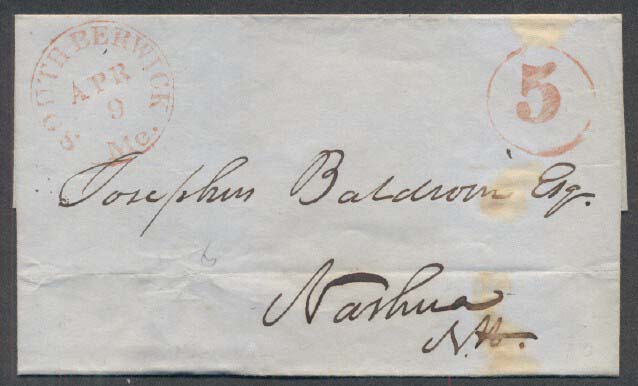 SOUTH BERWICK
APR
9
Me.
5
Josephus Baldwin Esq.
Nashua
N.H.